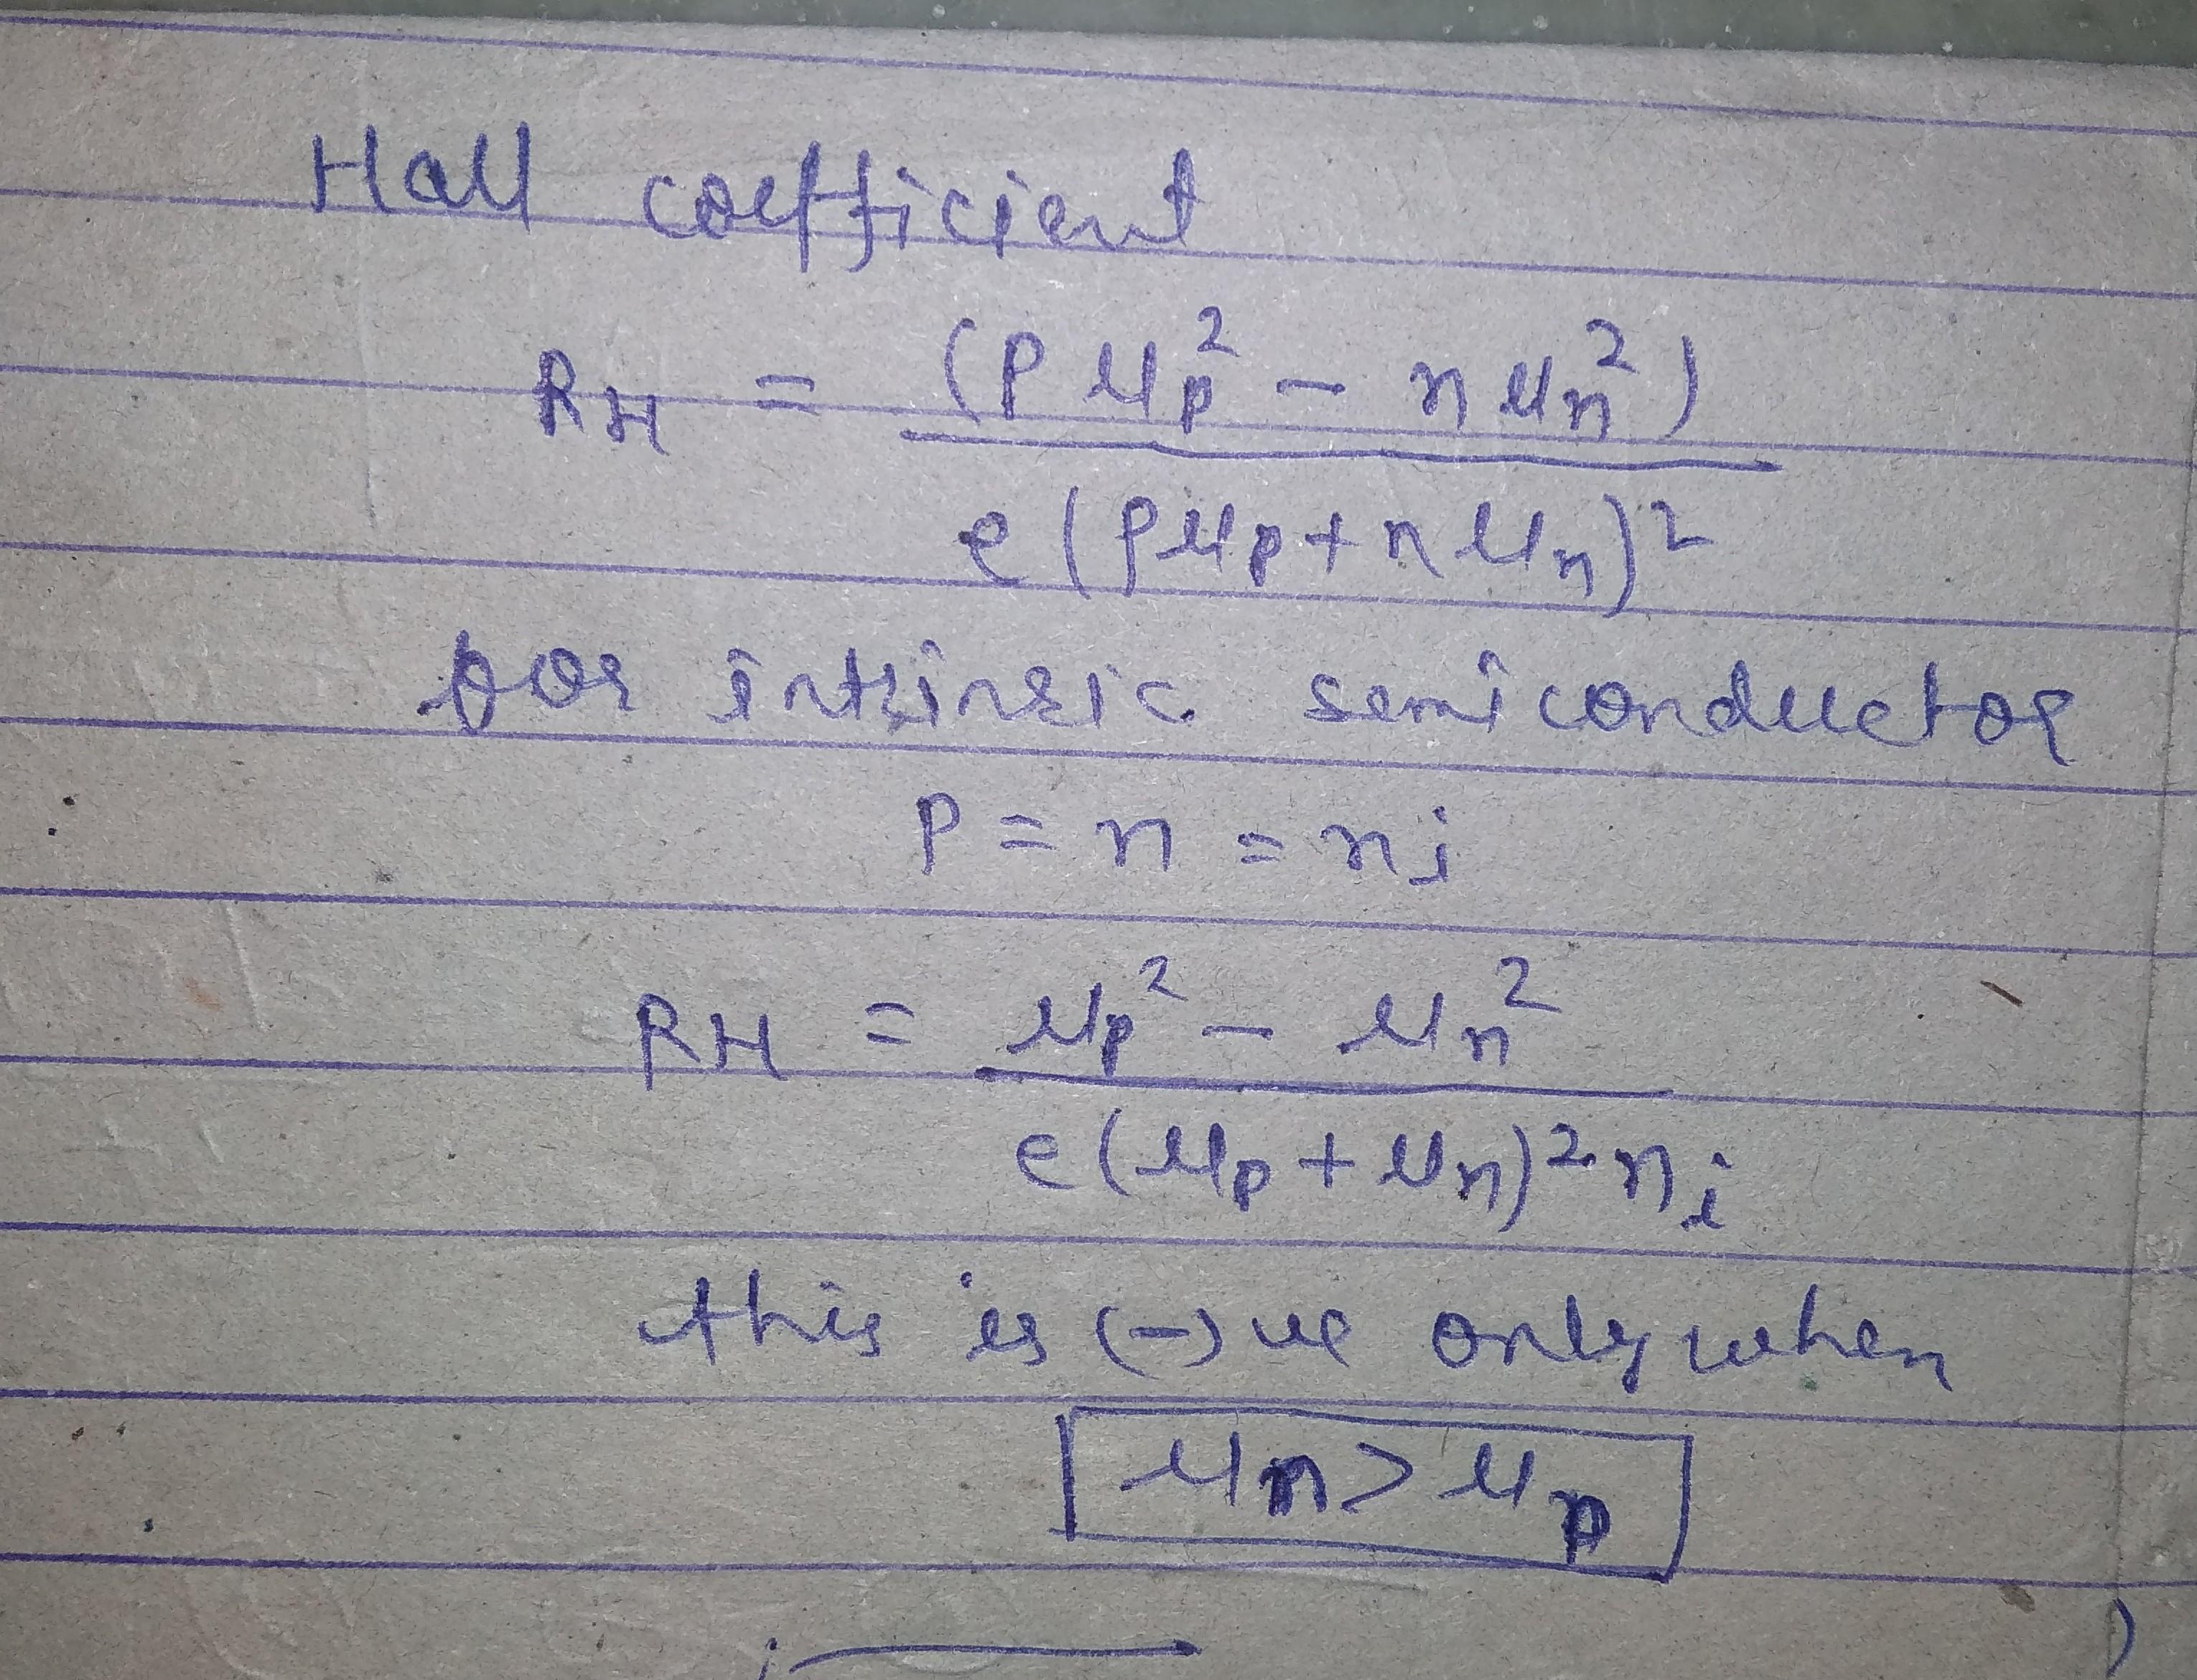 Hall coefficient
RH = (P μp² - n μn²)
e(pμp + n μn)²
for intrinsic semiconductor
P = n = ni
RH = μp² - μn²
e(μp + μn)² ni
this is (-)ve only when
μn > μp